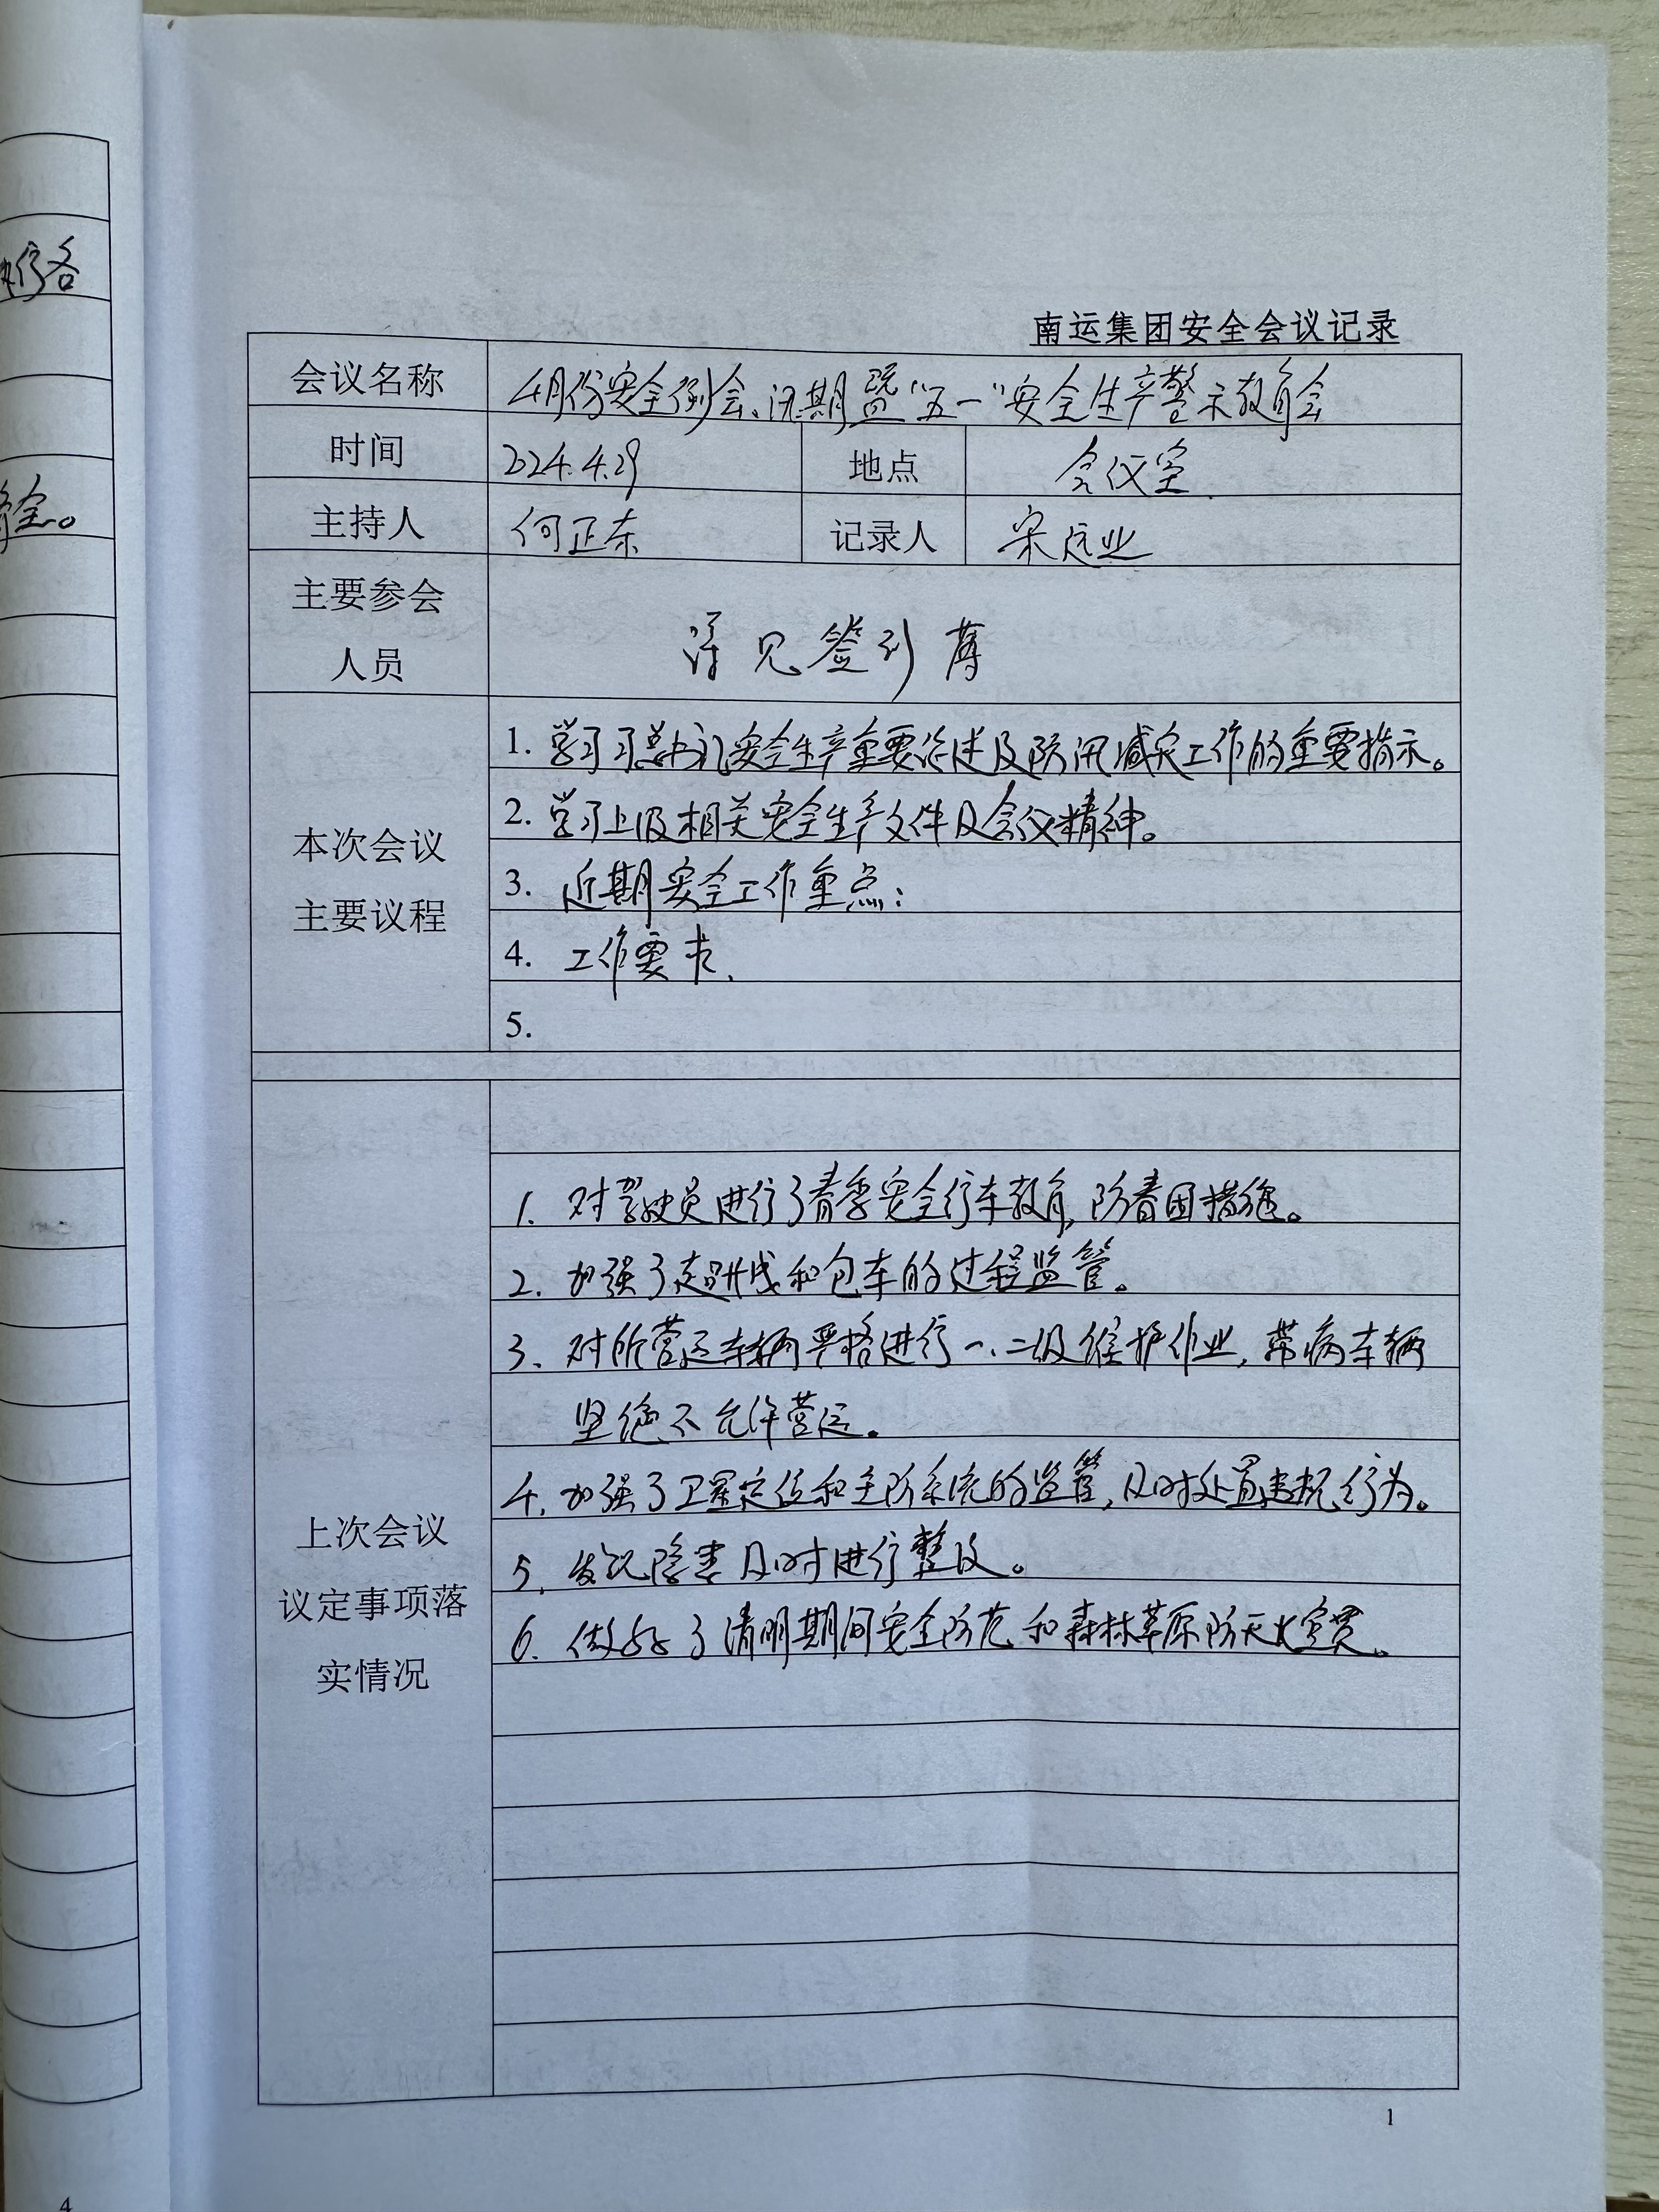 执行各
全。
南运集团安全会议记录
会议名称 4月份安全例会、汛期暨“五一”安全生产警示教育会
时间 2024.4.29 地点 会议室
主持人 何正东 记录人 宋远业
主要参会
人员
详见签到薄
本次会议
主要议程
1. 学习习总书记安全生产重要论述及防汛减灾工作的重要指示。
2. 学习上级相关安全生产文件及会议精神。
3. 近期安全工作重点:
4. 工作要求.
5.
上次会议
议定事项落
实情况
1. 对驾驶员进行了春季安全行车教育,防春困措施。
2. 加强了超长线和包车的过程监管。
3. 对所营运车辆严格进行一、二级维护作业,带病车辆
坚绝不允许营运。
4. 加强了卫星定位和主防系统的监管,及时处置违规行为。
5. 发现隐患及时进行整改。
6. 做好了清明期间安全防范和森林草原防灭火宣贯。
1
4